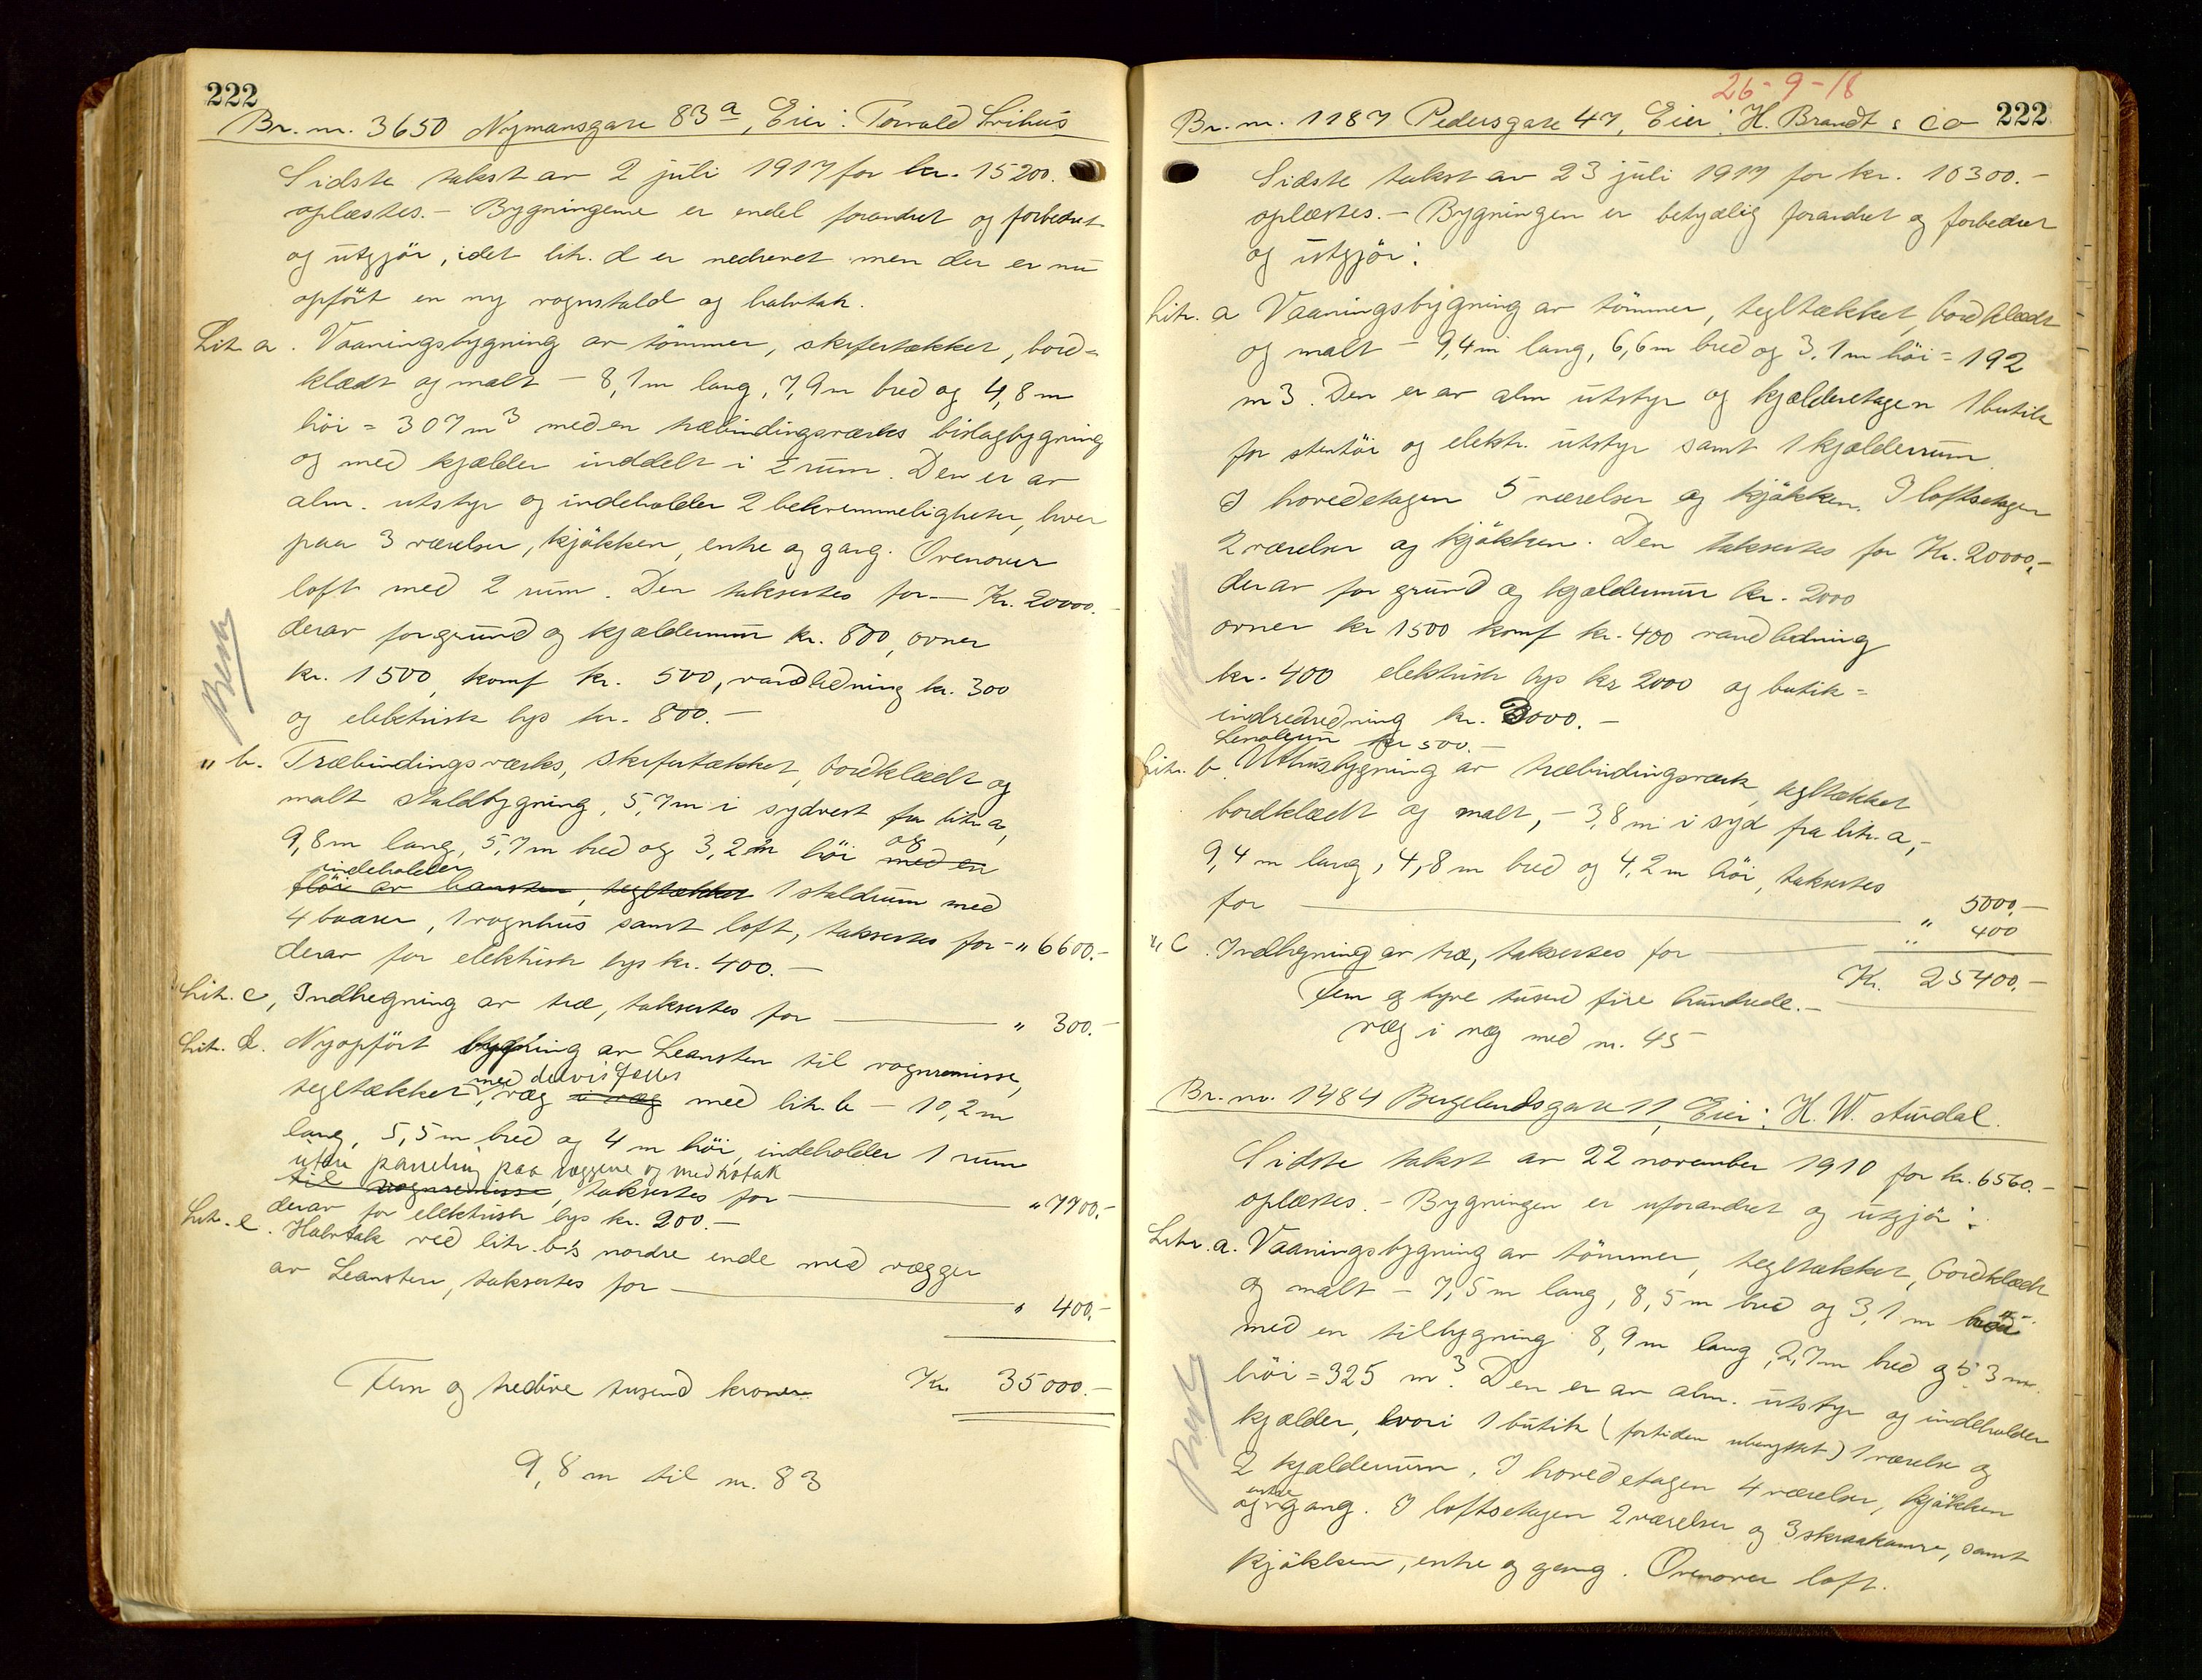 222
Br. nr. 3650 Nymansgate 83a, Eier: Torvald Svihus
Sidste takst av 2 juli 1917 for kr. 15200.
oplæstes. - Bygningerne er endel forandret og forbedret
og utgjör, idet litr. d er nedrevet men der er nu
opfört en ny vognstald og halvtak.
Litr. a. Vaaningsbygning av tömmer, skifertækket, bord=
klædt og malt - 8,1m lang, 7,9m bred og 4,8m
höi = 307m3 med en træbindingsværks bislagbygning
og med kjælder inddelt i 2 rum. Den er av
alm. utstyr og indeholder 2 bekvemmeligheter, hver
paa 3 værelser, kjökken, entre og gang. Ovenover
loft med 2 rum. Den taksertes for - Kr. 20000.
derav for grund og kjældermur kr. 800, ovner
kr. 1500, komf kr. 500, vandledning kr. 300
og elektrisk lys kr. 800.-
" b. Træbindingsværks, skifertækket, bordklædt og
malt staldbygning, 5,7m i sydvest fra litr. a,
9,8m lang, 5,7m bred og 3,2m höi og med en
indeholder
flöi av , tegltækket 1 staldrum med
4 baaser, 1 vognhus samt loft, taksertes for - " 6600.-
derav for elektrisk lys kr. 400.-
Litr. c, Indhegning av træ, taksertes for " 300.-
Litr. d. Nyopfört bygning av Leansten til vognremisse,
tegltækket, med delvis fælles væg i væg med litr. b - 10,2m
lang, 5,5m bred og 4m höi, indeholder 1 rum
uten paneling paa væggene og med
til vognremisse, taksertes for " 7700.-
derav for elektrisk lys kr. 200.-
Litr. e. Halvtak ved litr. b's nordre ende med vægger
av Leansten, taksertes for " 400.-
Fem og tredive tusend kroner Kr. 35000.-
9,8m til nr. 83
26-9-18
222
Br. nr. 1187 Pedersgate 47, Eier: H. Brandt & Co
Sidste takst av 23 juli 1917 for kr. 10300.-
oplæstes. - Bygningen er betydelig forandret og forbedret
og utgjör:
Litr. a Vaaningsbygning av tömmer, tegltækket, bordklædt
og malt - 9,4m lang, 6,6m bred og 3,1m höi = 192
m3. Den er av alm utstyr og kjælderetagen 1 butik
for stentöi og elektr. utstyr samt 1 kjælderrum.
I hovedetagen 5 værelser og kjökken. I loftsetagen
2 værelser og kjökken. Den taksertes for Kr. 20000,-
derav for grund og kjældermur kr. 2000
ovner kr 1500 komf kr. 400 vandledning
kr. 400 elektrisk lys kr 2000 og butik=
indredning kr. 3000.-
Linoleum kr 500.-
Litr. b. Uthusbygning av træbindingsværk, tegltækket
bordklædt og malt, - 3,8m i syd fra litr. a,-
9,4m lang, 4,8m bred og 4,2m höi, taksertes
for " 5000,-
" c. Indhegning av træ, taksertes for " 400
Kr. 25400.-
Fem og tyve tusend fire hundrede.-
væg i væg med nr. 45
Br. nr. 1484 Bergelandsgate 11, Eier: H. W. Aurdal.
Sidste takst av 22 november 1910 for kr. 6560.-
oplæstes. - Bygningen er uforandret og utgjör:
Litr. a. Vaaningsbygning av tömmer, tegltækket, bordklædt
og malt - 7,5m lang, 8,5m bred og 3,1m höi
med en tilbygning 8,9m lang, 2,7m bred og 5,3m
höi = 325 m3. Den er av alm. utstyr og indeholder
kjælder, hvori 1 butik (fortiden ubenyttet) 1 værelse og
2 kjælderrum. I hovedetagen 4 værelser, kjökken
entre
og gang. I loftsetagen 2 værelser og 3 skraakamre, samt
kjökken, entre og gang. Ovenover loft.